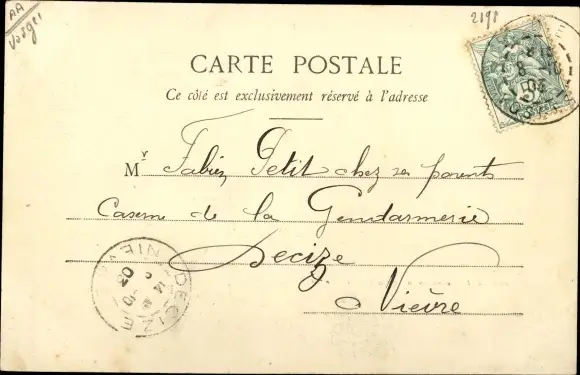 AA
Vosges
2898
CARTE POSTALE
Ce côté est exclusivement réservé à l'adresse
Mr Fabien Petit chez ses parents
Caserne de la Gendarmerie
Decize
Nièvre
DECIZE
NIEVRE